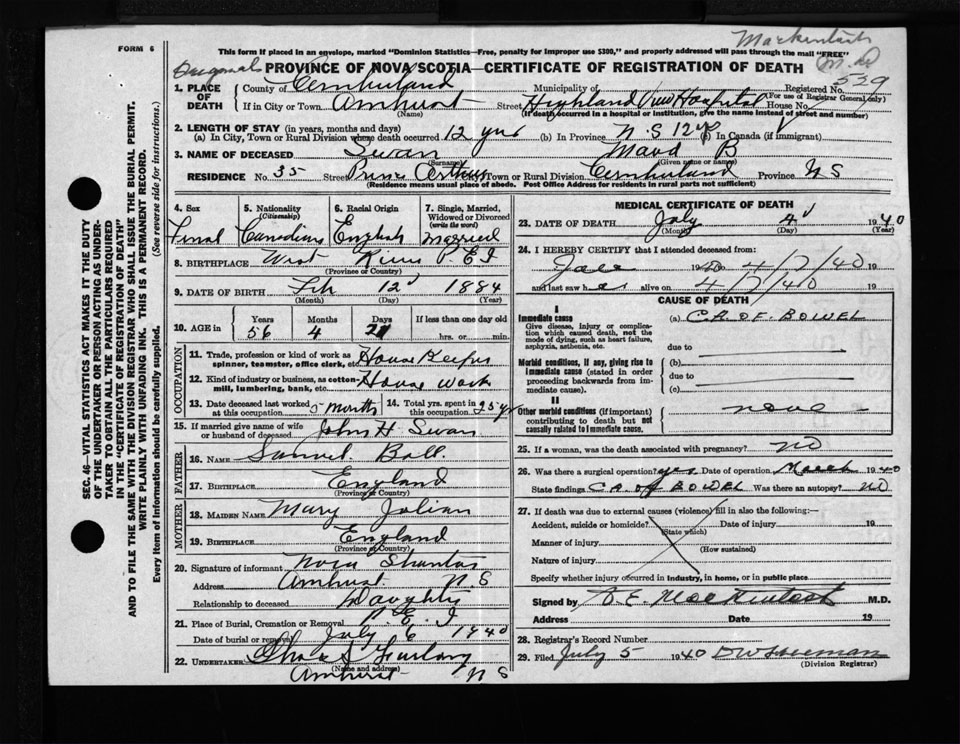 Mackintosh
M.D
FORM 6
This form if placed in an envelope, marked "Dominion Statistics—Free, penalty for improper use $300," and properly addressed will pass through the mail "FREE"
PROVINCE OF NOVA SCOTIA—CERTIFICATE OF REGISTRATION OF DEATH
Registered No. 539
(For use of Registrar General only)
1. PLACE OF DEATH
County of Cumberland Municipality of
If in City or Town Amherst Street Highland View Hospital House No.
(Name) (If death occurred in a hospital or institution, give the name instead of street and number)
2. LENGTH OF STAY (in years, months and days)
(a) In City, Town or Rural Division where death occurred 12 yrs (b) In Province N.S 12 (c) In Canada (if immigrant)
3. NAME OF DECEASED Swan Maud B
(Surname) (Given name or names)
RESIDENCE No. 35 Street Prince Arthur City, Town or Rural Division Cumberland Province N S
(Residence means usual place of abode. Post Office Address for residents in rural parts not sufficient)
4. Sex 5. Nationality (Citizenship) 6. Racial Origin 7. Single, Married, Widowed or Divorced (write the word)
Canadian English Married
8. BIRTHPLACE West River P.E I
(Province or Country)
9. DATE OF BIRTH Feb 12 1884
(Month) (Day) (Year)
10. AGE in Years Months Days If less than one day old
56 4 hrs. or min.
OCCUPATION
11. Trade, profession or kind of work as spinner, teamster, office clerk, etc. House Keeper
12. Kind of industry or business, as cotton-mill, lumbering, bank, etc. House work
13. Date deceased last worked at this occupation 5 months 14. Total yrs. spent in this occupation 25 yrs
15. If married give name of wife or husband of deceased John H Swan
FATHER
16. NAME Samuel Ball
17. BIRTHPLACE England
(Province or Country)
MOTHER
18. MAIDEN NAME Mary
19. BIRTHPLACE England
(Province or Country)
20. Signature of informant Nora
Address Amherst N.S
Relationship to deceased Daughter
21. Place of Burial, Cremation or Removal P.E.I
Date of burial or removal July 6 1940
22. UNDERTAKER
(Name and address)
Amherst N S
MEDICAL CERTIFICATE OF DEATH
23. DATE OF DEATH July 4 1940
(Month) (Day) (Year)
24. I HEREBY CERTIFY that I attended deceased from:
4/7/40 19
and last saw her alive on 4/7/40 19
CAUSE OF DEATH
I
Immediate cause
Give disease, injury or complication which caused death, not the mode of dying, such as heart failure, asphyxia, asthenia, etc.
(a) CA OF BOWEL
due to
Morbid conditions, if any, giving rise to immediate cause (stated in order proceeding backwards from immediate cause).
(b)
due to
(c)
II
Other morbid conditions (if important) contributing to death but not causally related to immediate cause.
none
25. If a woman, was the death associated with pregnancy? NO
26. Was there a surgical operation? yes Date of operation March 1940
State findings CA OF BOWEL Was there an autopsy? NO
27. If death was due to external causes (violence) fill in also the following:—
Accident, suicide or homicide? Date of injury 19
(State which)
Manner of injury
(How sustained)
Nature of injury
Specify whether injury occurred in industry, in home, or in public place
Signed by Mackintosh M.D.
Address Date 19
28. Registrar's Record Number
29. Filed July 5 1940
(Division Registrar)
SEC. 46—VITAL STATISTICS ACT MAKES IT THE DUTY
OF THE UNDERTAKER OR PERSON ACTING AS UNDER-
TAKER TO OBTAIN ALL THE PARTICULARS REQUIRED
IN THE "CERTIFICATE OF REGISTRATION OF DEATH"
AND TO FILE THE SAME WITH THE DIVISION REGISTRAR WHO SHALL ISSUE THE BURIAL PERMIT.
WRITE PLAINLY WITH UNFADING INK. THIS IS A PERMANENT RECORD.
Every item of Information should be carefully supplied. (See reverse side for instructions.)